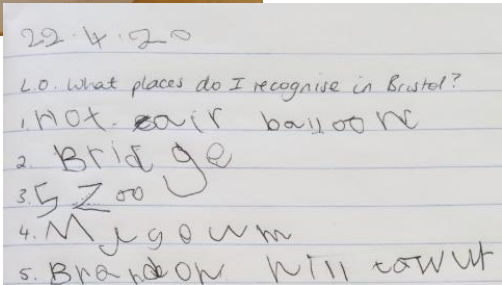 22.4.20
L.O. What places do I recognise in Bristol?
1. Hot. eair balloon
2. Bridge
3. 5 Zoo
4. Mygoum
5. Brandon hill tawur